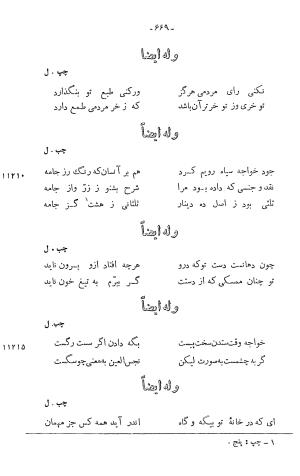 -۶۶۹-
وله ایضاً
چپ . ل
نکنی رای مردمی هرگز ورکنی طبع تو بنگذارد
تو خری وز تو خرتر آن باشد که ز خر مردمی طمع دارد
وله ایضاً
چپ . ل
۱۱۲۱۰ جود خواجه سیاه رویم کرد هم بر آنسان که رنگ رز جامه
نقد و جنسی که داده بود مرا شرح بشنو ز زرّ واز جامه
ثلثی بد ز اصل ده دینار ثلثانی ز هشت گز جامه
وله ایضاً
چپ . ل
چون دهانست دست تو که درو هرچه افتاد ازو برون ناید
تو چنان ممسکی که از دستت گر ببرّم به تیغ خون ناید
وله ایضاً
چپ . ل
۱۱۲۱۵ خواجه وقت ستدن سخت پیست بگه دادن اگر سست رگست
گر به چشمست به صورت لیکن نجس العین به معنی چو سگست
وله ایضاً
چپ . ل
ای که در خانهٔ تو بیگه و گاه اندر آید همه کس جز مهمان
۱ - چپ : پنج .